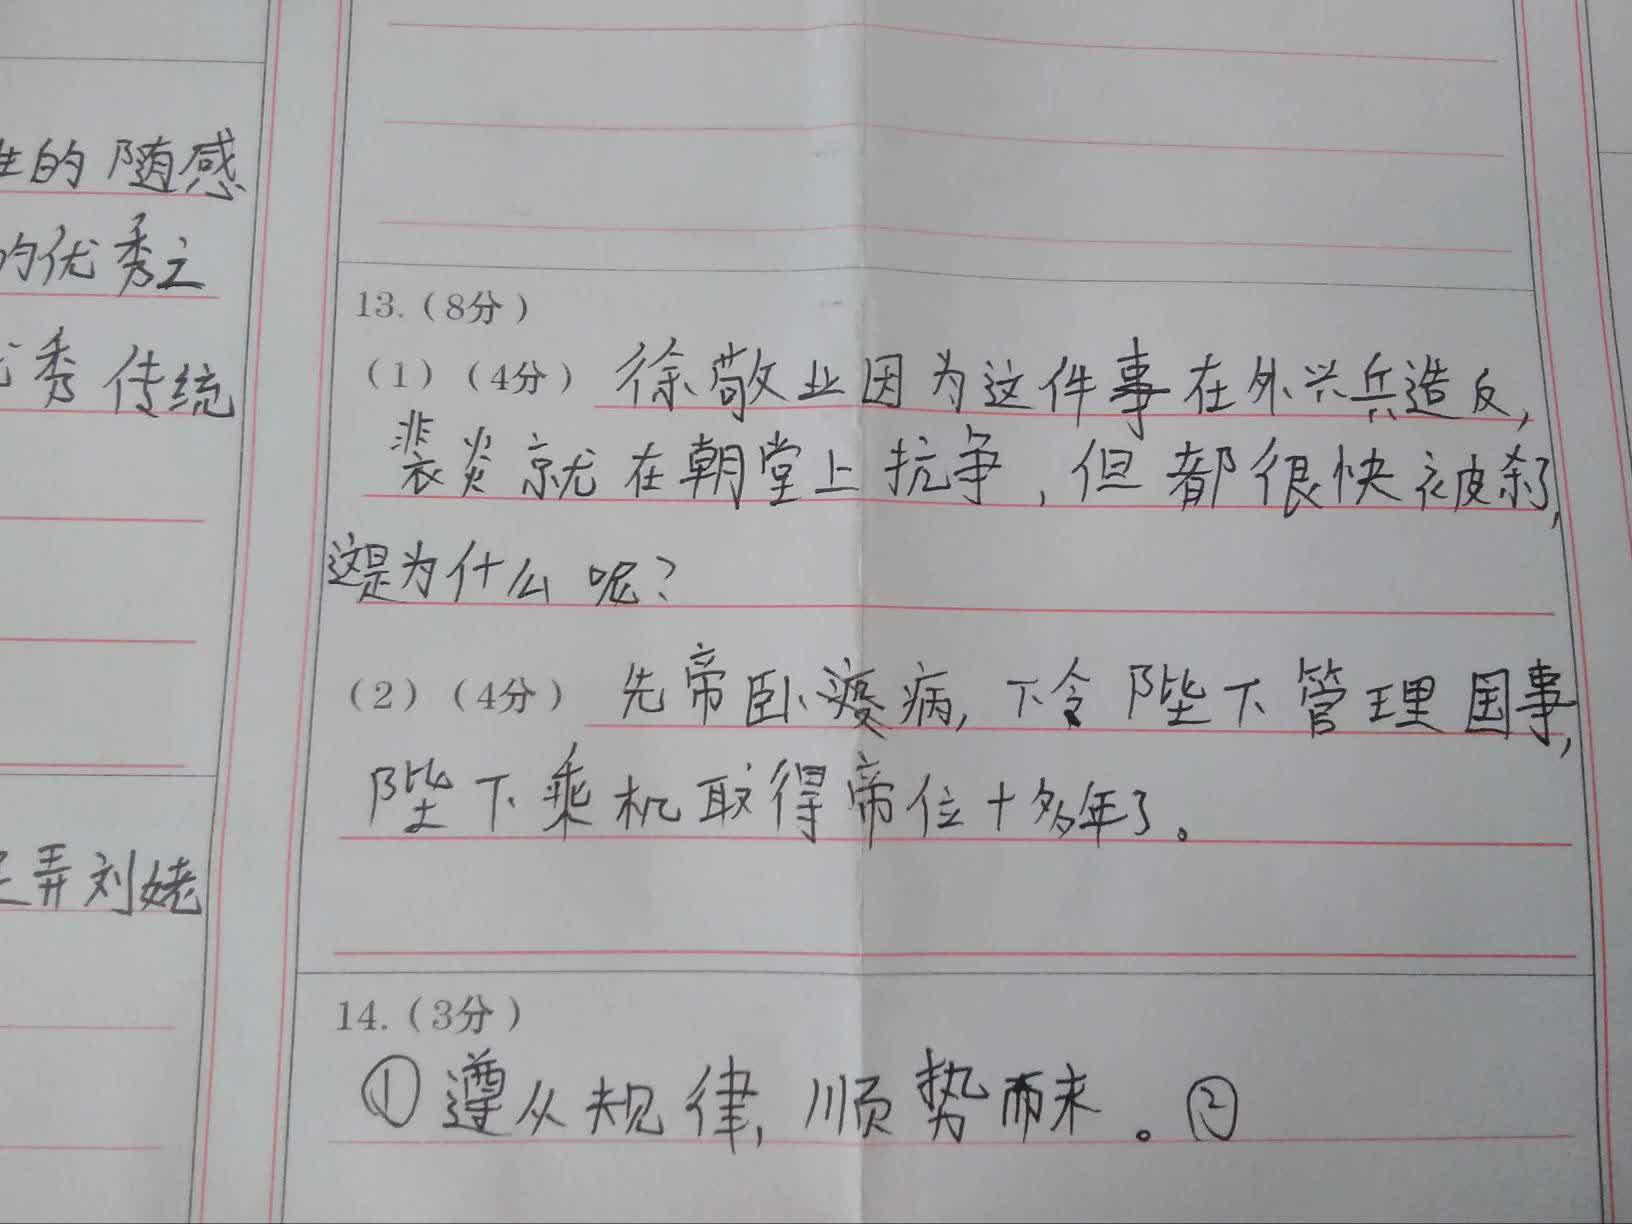 的随感
的优秀之
秀传统
弄刘姥
13.(8分)
(1)(4分)徐敬业因为这件事在外兴兵造反,
裴炎就在朝堂上抗争,但都很快被杀,
这是为什么呢?
(2)(4分)先帝卧疾病,下令陛下管理国事,
陛下乘机取得帝位十多年了。
14.(3分)
①遵从规律,顺势而来。②